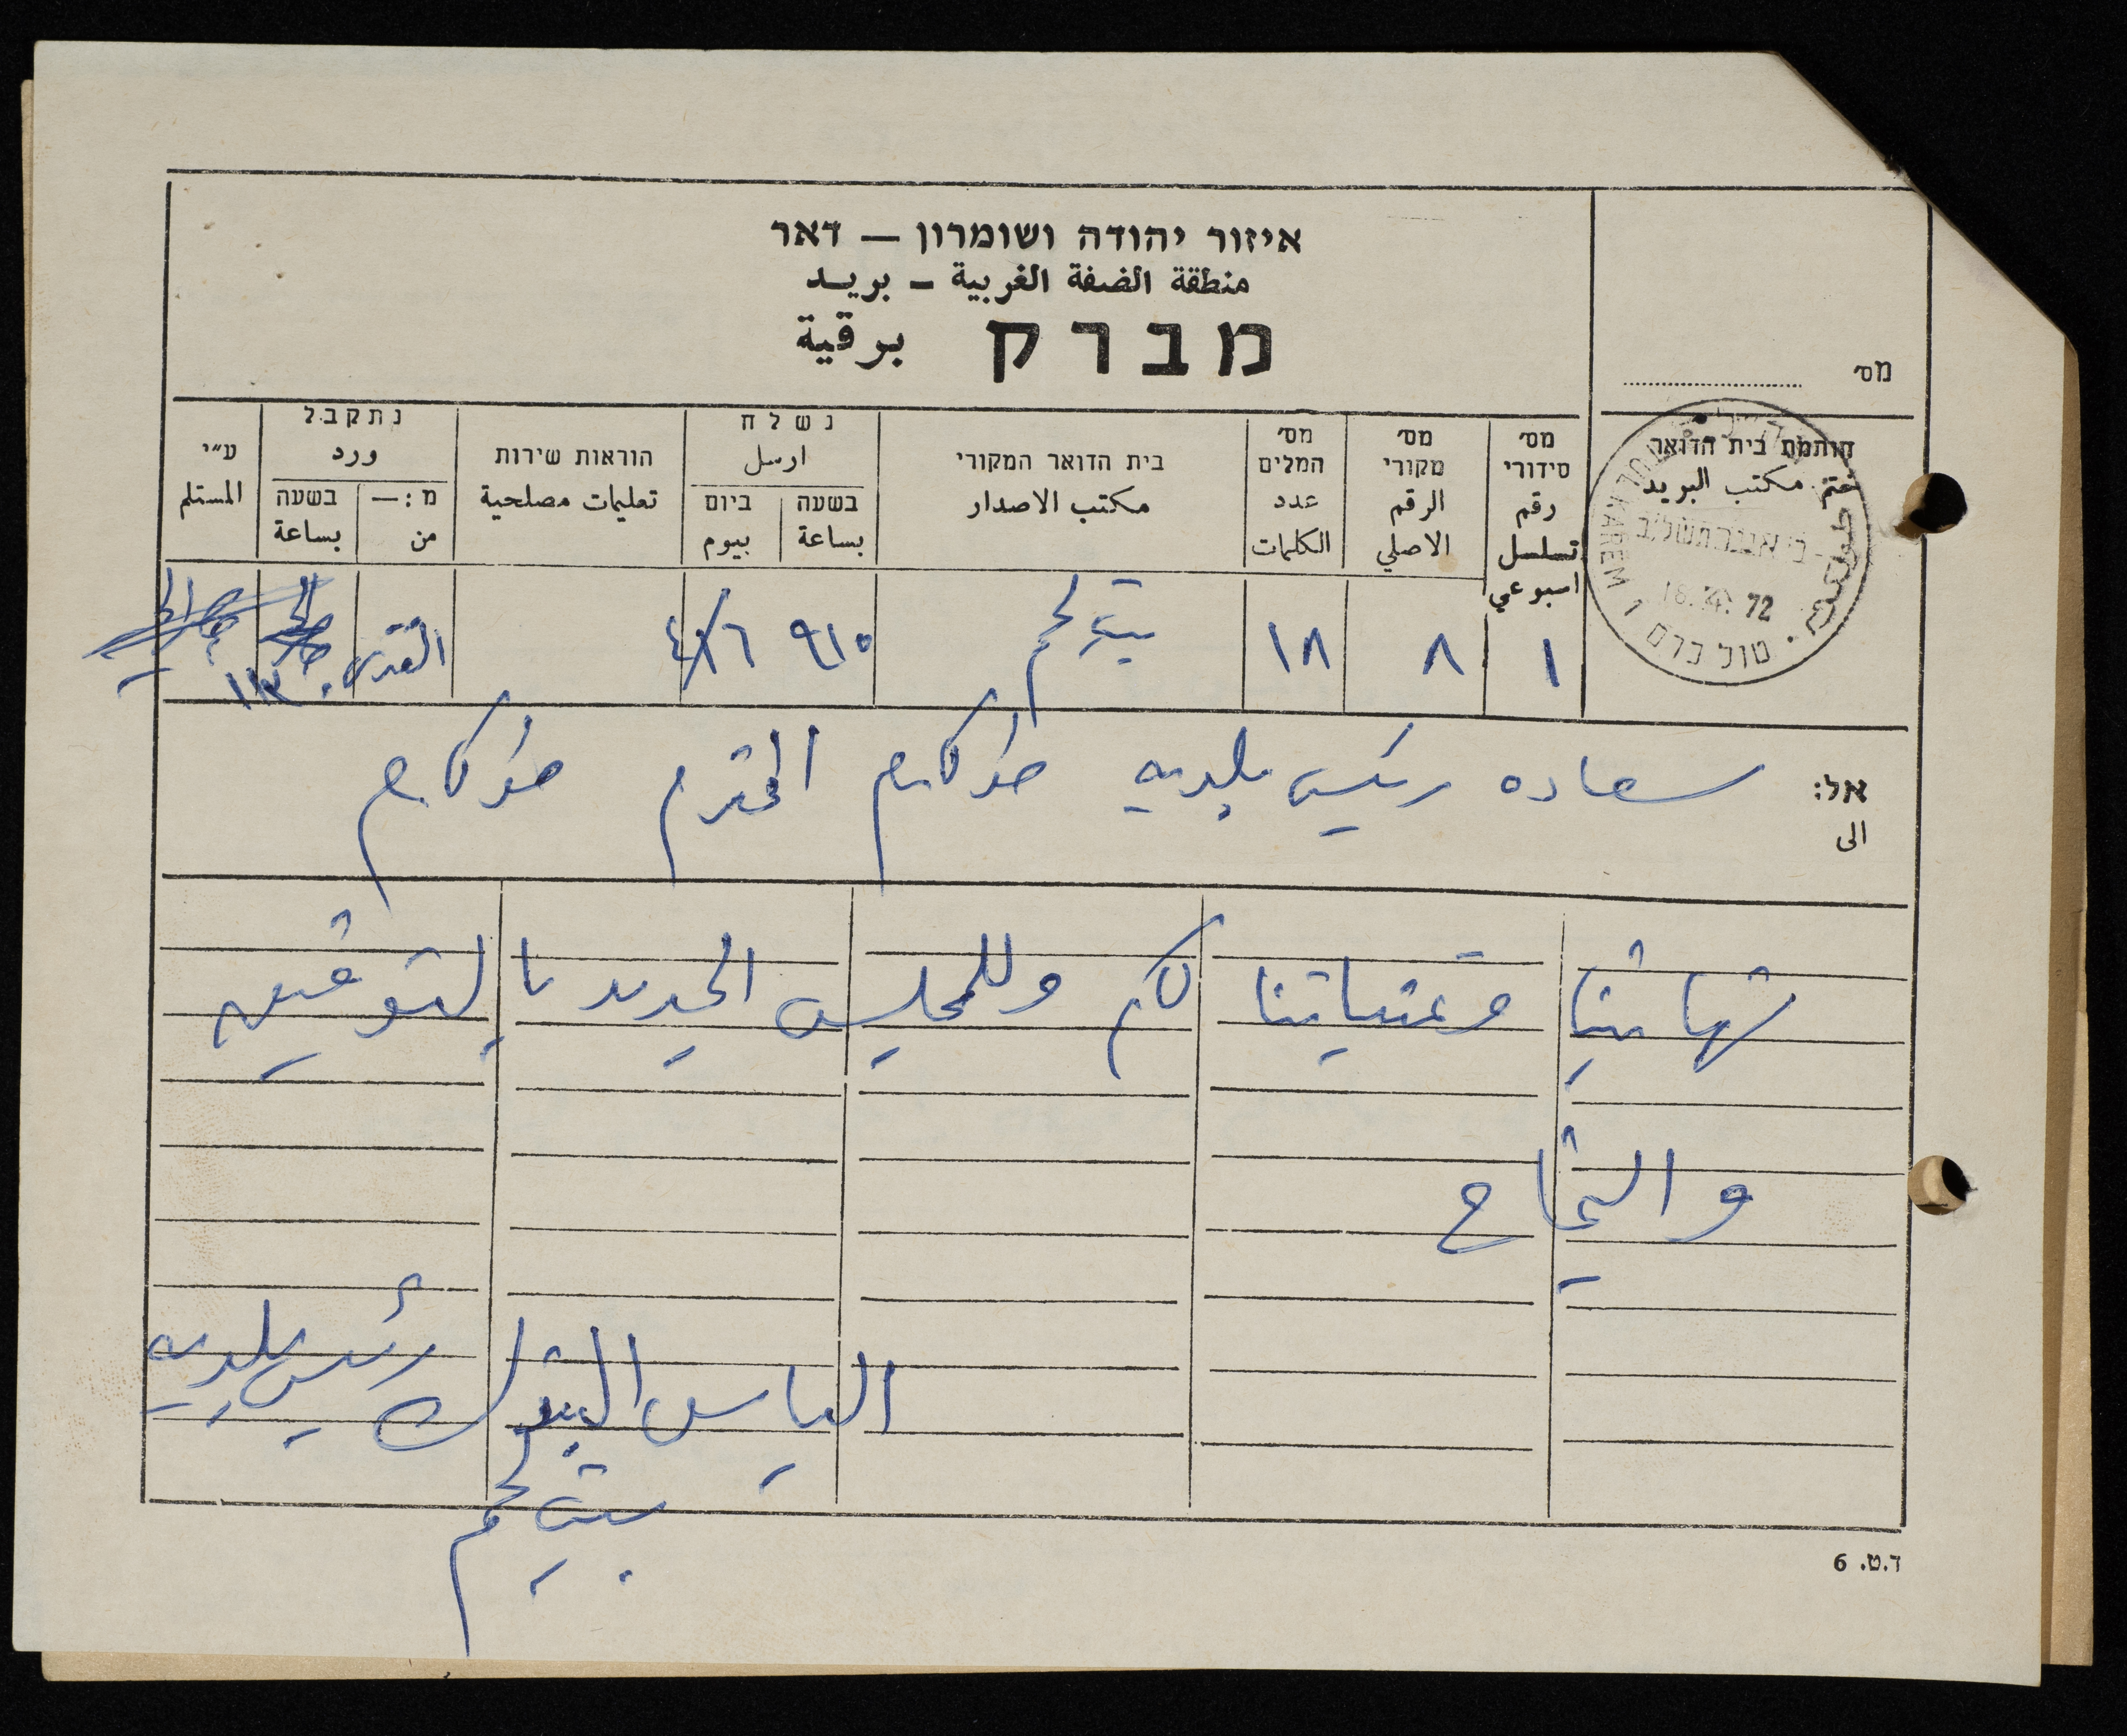 איזור יהודה ושומרון — דאר
منطقة الضفة الغربية - بريد
מברק برقية
מס׳
חותמת בית הדואר
ختم مكتب البريد
TUL KAREM 1
16. 4. 72
טול כרם
מס׳ סידורי رقم تسلسل اسبوعي
מס׳ מקורי الرقم الاصلي
מס׳ המלים عدد الكلمات
בית הדואר המקורי مكتب الاصدار
נשלח ارسل
בשעה بساعة
ביום بيوم
הוראות שירות تعليمات مصلحية
נתקבל ورد
מ: — من
בשעה بساعة
ע״י المستلم
١ ٨ ١٨ بيت لحم ٩١٥ ١٦/٤ القدس
אל: الى
سعاده رئيس بلديه طولكرم المحترم طولكرم
تهانينا وتمنياتنا لكم وللمجلس الجديد بالتوفيق
والنجاح
الياس البندك رئيس بلديه
بيت لحم
ד.ט. 6